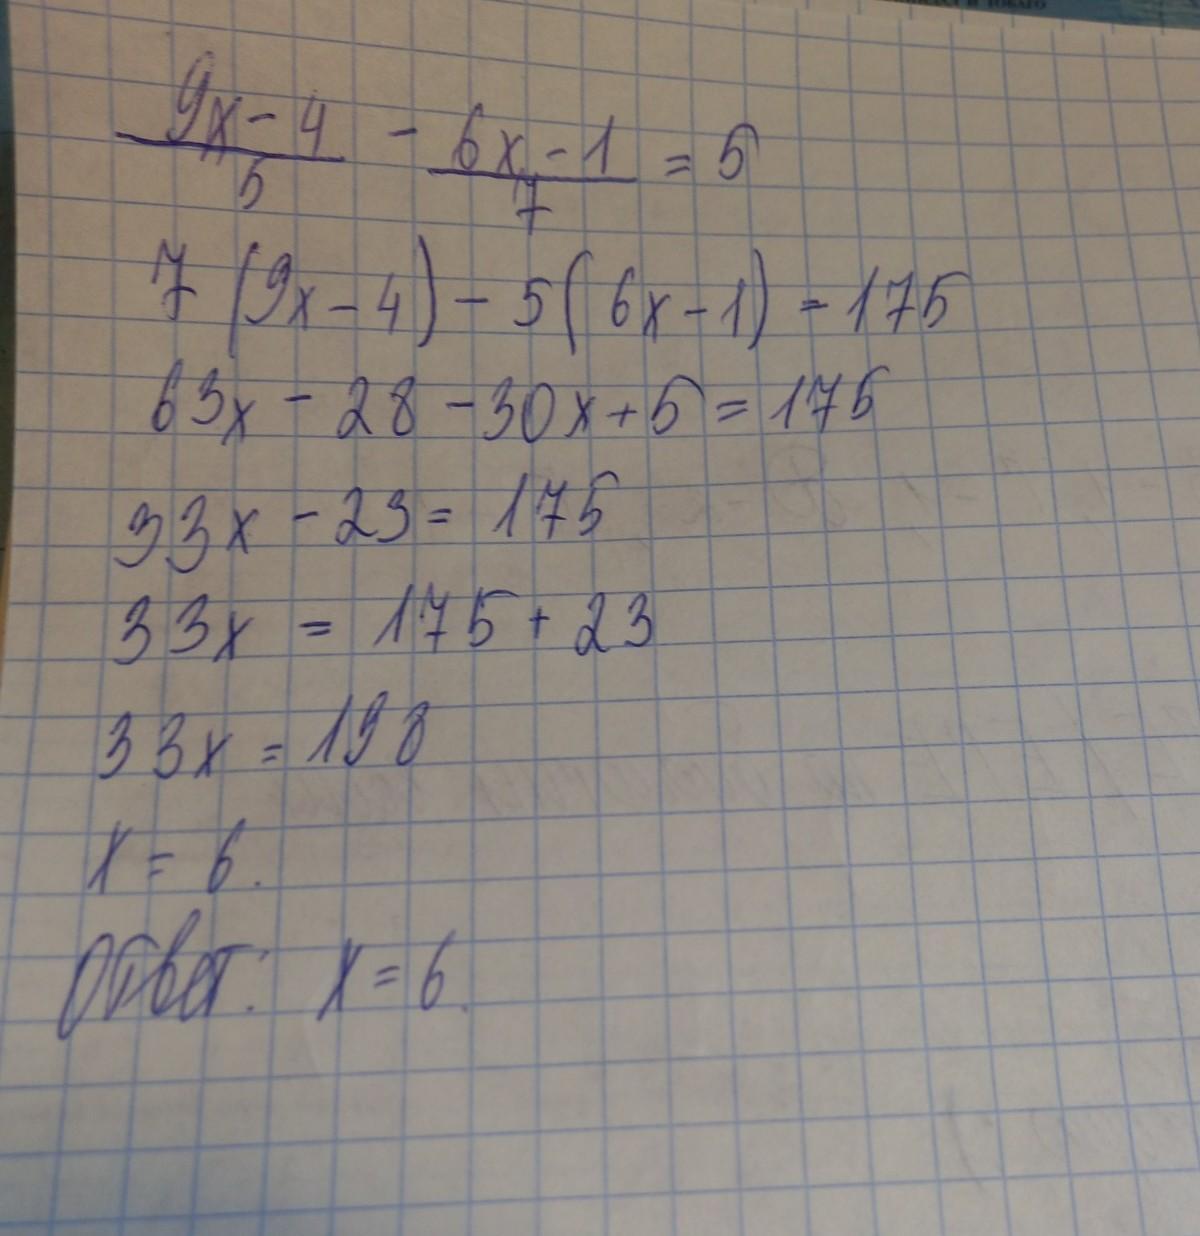 (9x - 4)/5 - (6x - 1)/7 = 5
7 (9x - 4) - 5 (6x - 1) = 175
63x - 28 - 30x + 5 = 175
33x - 23 = 175
33x = 175 + 23
33x = 198
x = 6.
Ответ: x = 6.